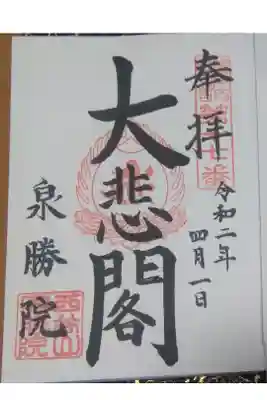 奉拝
令和二年
四月一日
大悲閣
泉勝院